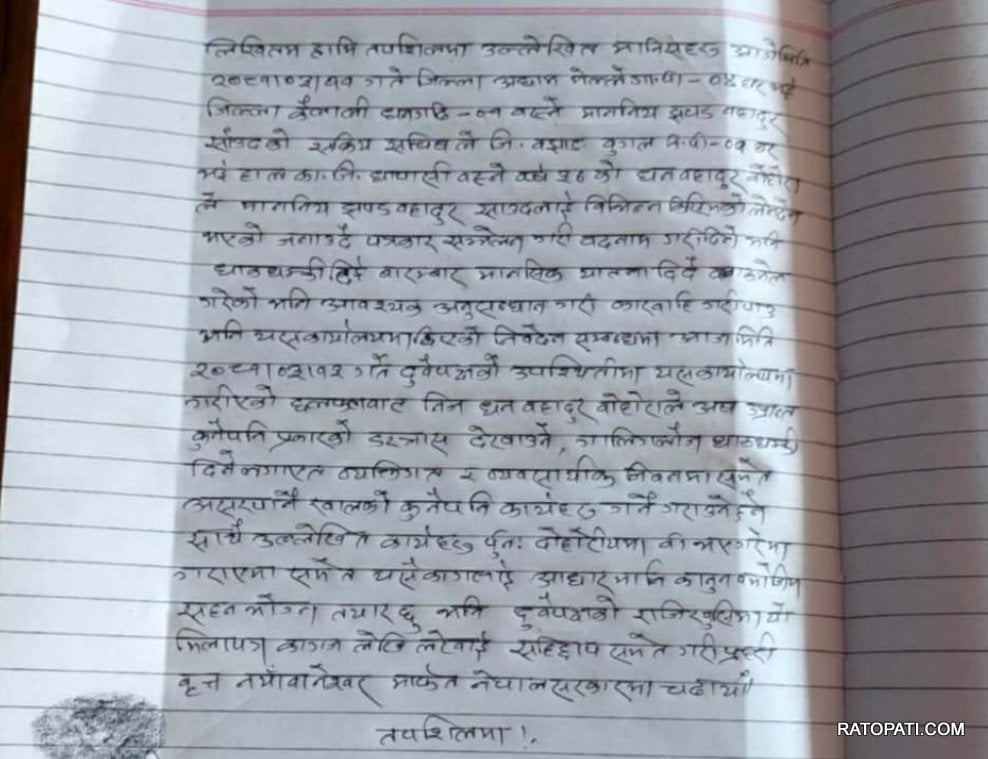 लिखितम हामि तपशिलमा उल्लेखित मानिसहरु आगे मिति
गते जिल्ला अछाम मेल्लेख गा.पा - ०४ घर भई
जिल्ला कैलाली धनगढि - ०१ बस्ने माननिय झपट बहादुर
साँउदको सचिवले जि. बझाङ बुंगल न.पा - ०१ घर
भई हाल का.जि. धापासी बस्ने वर्ष ५८ को धन बहादुर बोहोरा
ले माननिय झपड बहादुर साउदलाई विभिन्न किसिमको लेनदेन
भएको जनाउदै पत्रकार सम्मेलन गरी बदनाम गरीदिने भनि
धाकधम्की दिई बारम्बार मानसिक यातना दिदै
गरेको भनि आवश्यक अनुसन्धान गरी कारवाहि गरीपाउ
भनि यसकार्यालयमा दिएको निवेदन सम्बन्धमा आज मिति
गते दुवैपक्षको उपस्थितीमा यसकार्यालयमा
गरीएको छलफलबाट निज धन बहादुर बोहोराले अब उप्रान्त
कुनैपनि प्रकारको डरत्रास देखाउने, गालिगलौज धाकधम्की
दिने लगाएत व्यक्तिगत र व्यवसायीक जिवनमा समेत
असरपार्ने खालको कुनैपनि कार्यहरु गर्ने गराउनेछैन
साथै उल्लेखित कार्यहरु पुन: दोहोरीयमा वा भएगरेमा
गराएमा समेत यसै कागजलाई आधार मानि कानुन बमोजिम
सहन भोग्न तयार छु भनि दुवैपक्षको राजिखुसिमा यो
मिलापत्र कागज लेखि लेखाई सहिछाप समेत गरी प्रहरी
वृत्त नयाँबानेश्वर मार्फत नेपाल सरकारमा चढायौं
तपशिलमा !.
RATOPATI.COM